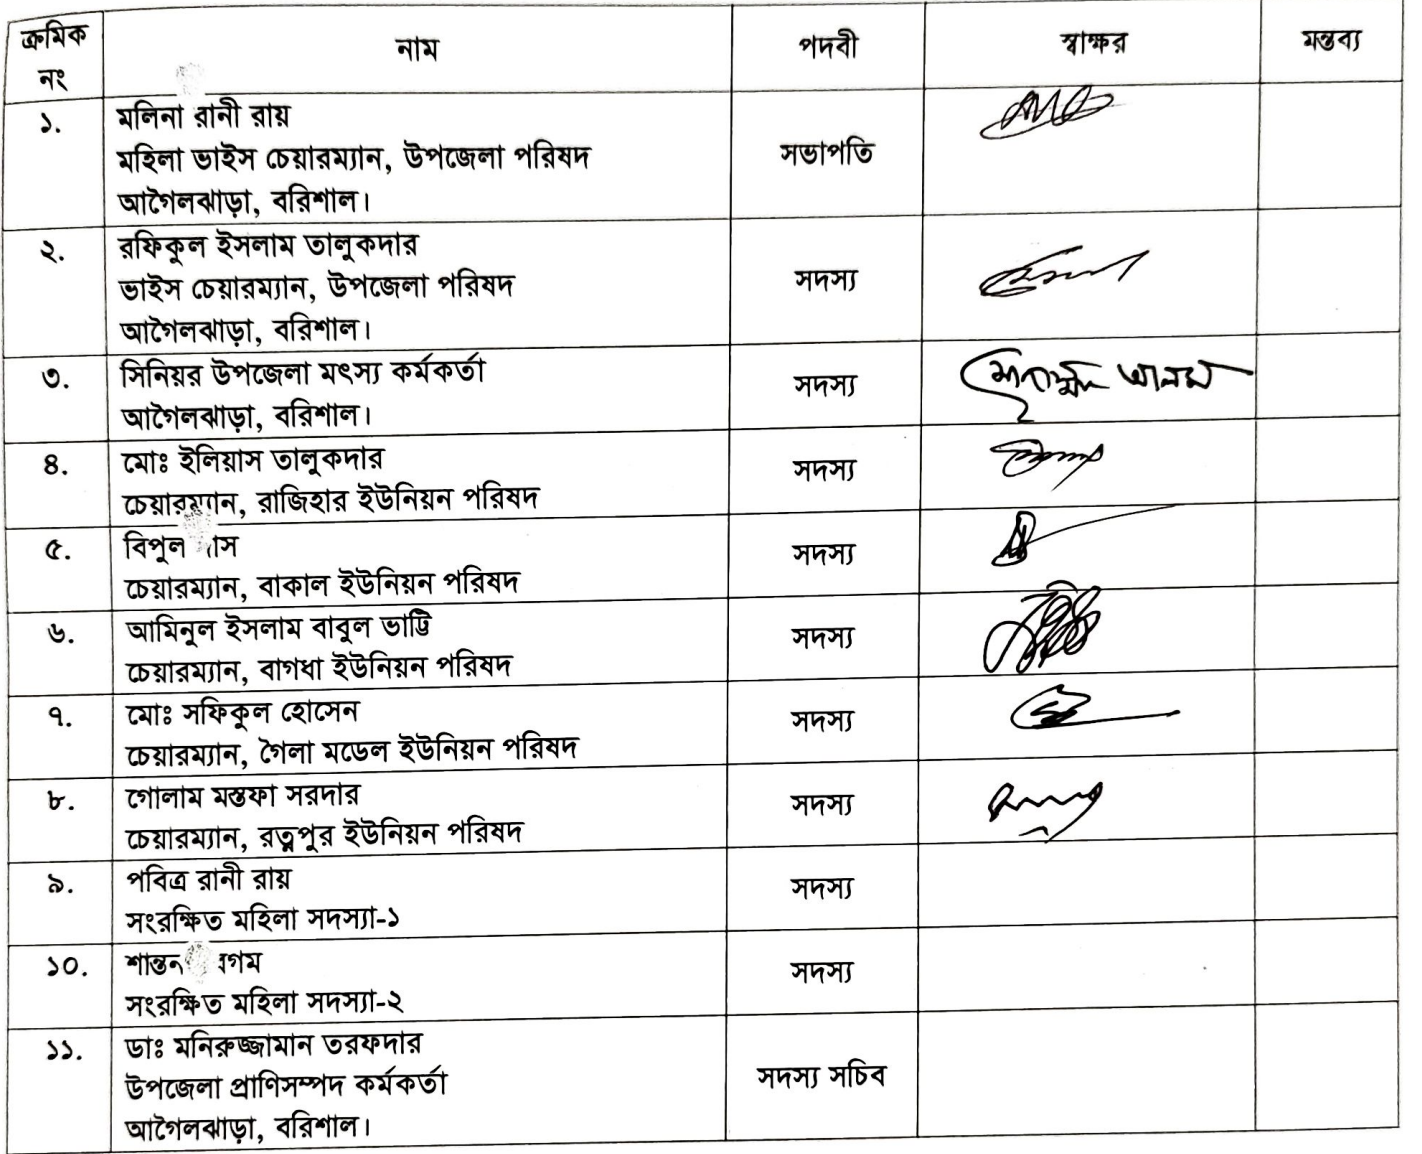 ক্রমিক নং নাম পদবী স্বাক্ষর মন্তব্য
১. মলিনা রানী রায়
মহিলা ভাইস চেয়ারম্যান, উপজেলা পরিষদ
আগৈলঝাড়া, বরিশাল।
সভাপতি
২. রফিকুল ইসলাম তালুকদার
ভাইস চেয়ারম্যান, উপজেলা পরিষদ
আগৈলঝাড়া, বরিশাল।
সদস্য
৩. সিনিয়র উপজেলা মৎস্য কর্মকর্তা
আগৈলঝাড়া, বরিশাল।
সদস্য
৪. মোঃ ইলিয়াস তালুকদার
চেয়ারম্যান, রাজিহার ইউনিয়ন পরিষদ
সদস্য
৫. বিপুল
চেয়ারম্যান, বাকাল ইউনিয়ন পরিষদ
সদস্য
৬. আমিনুল ইসলাম বাবুল ভাট্টি
চেয়ারম্যান, বাগধা ইউনিয়ন পরিষদ
সদস্য
৭. মোঃ সফিকুল হোসেন
চেয়ারম্যান, গৈলা মডেল ইউনিয়ন পরিষদ
সদস্য
৮. গোলাম মস্তফা সরদার
চেয়ারম্যান, রত্নপুর ইউনিয়ন পরিষদ
সদস্য
৯. পবিত্র রানী রায়
সংরক্ষিত মহিলা সদস্যা-১
সদস্য
১০.
সংরক্ষিত মহিলা সদস্যা-২
সদস্য
১১. ডাঃ মনিরুজ্জামান তরফদার
উপজেলা প্রাণিসম্পদ কর্মকর্তা
আগৈলঝাড়া, বরিশাল।
সদস্য সচিব